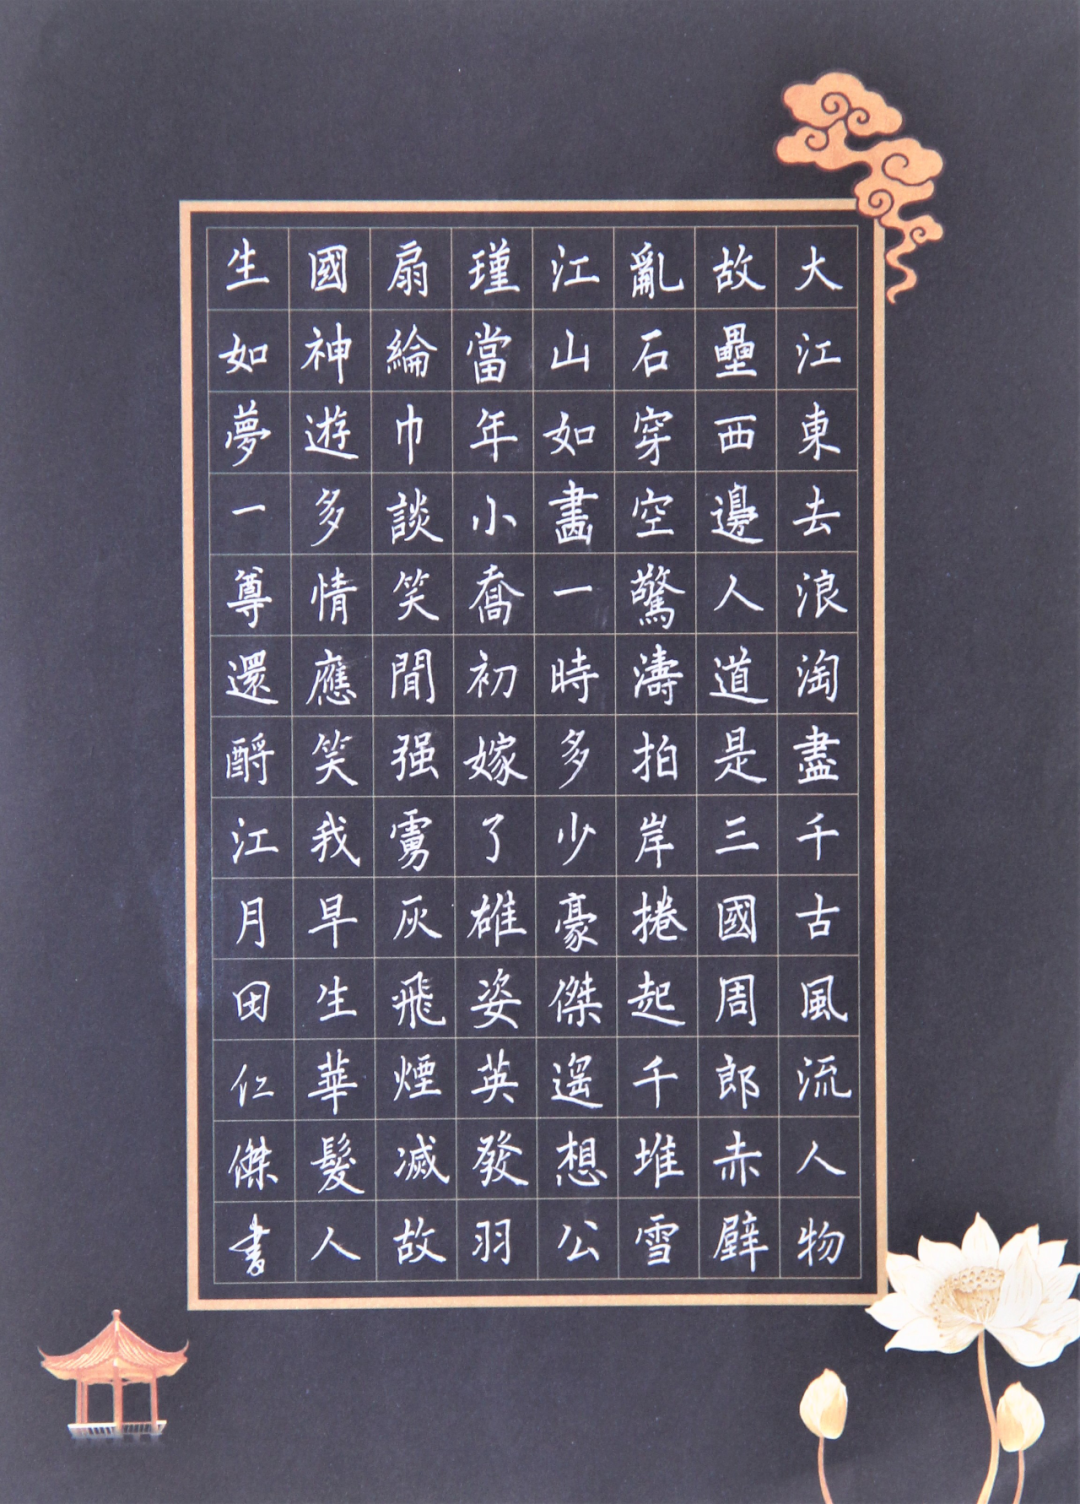 大江東去浪淘盡千古風流人物
故壘西邊人道是三國周郎赤壁
亂石穿空驚濤拍岸捲起千堆雪
江山如畵一時多少豪傑遙想公
瑾當年小喬初嫁了雄姿英發羽
扇綸巾談笑間强虜灰飛煙滅故
國神遊多情應笑我早生華髮人
生如夢一尊還酹江月田仁傑書